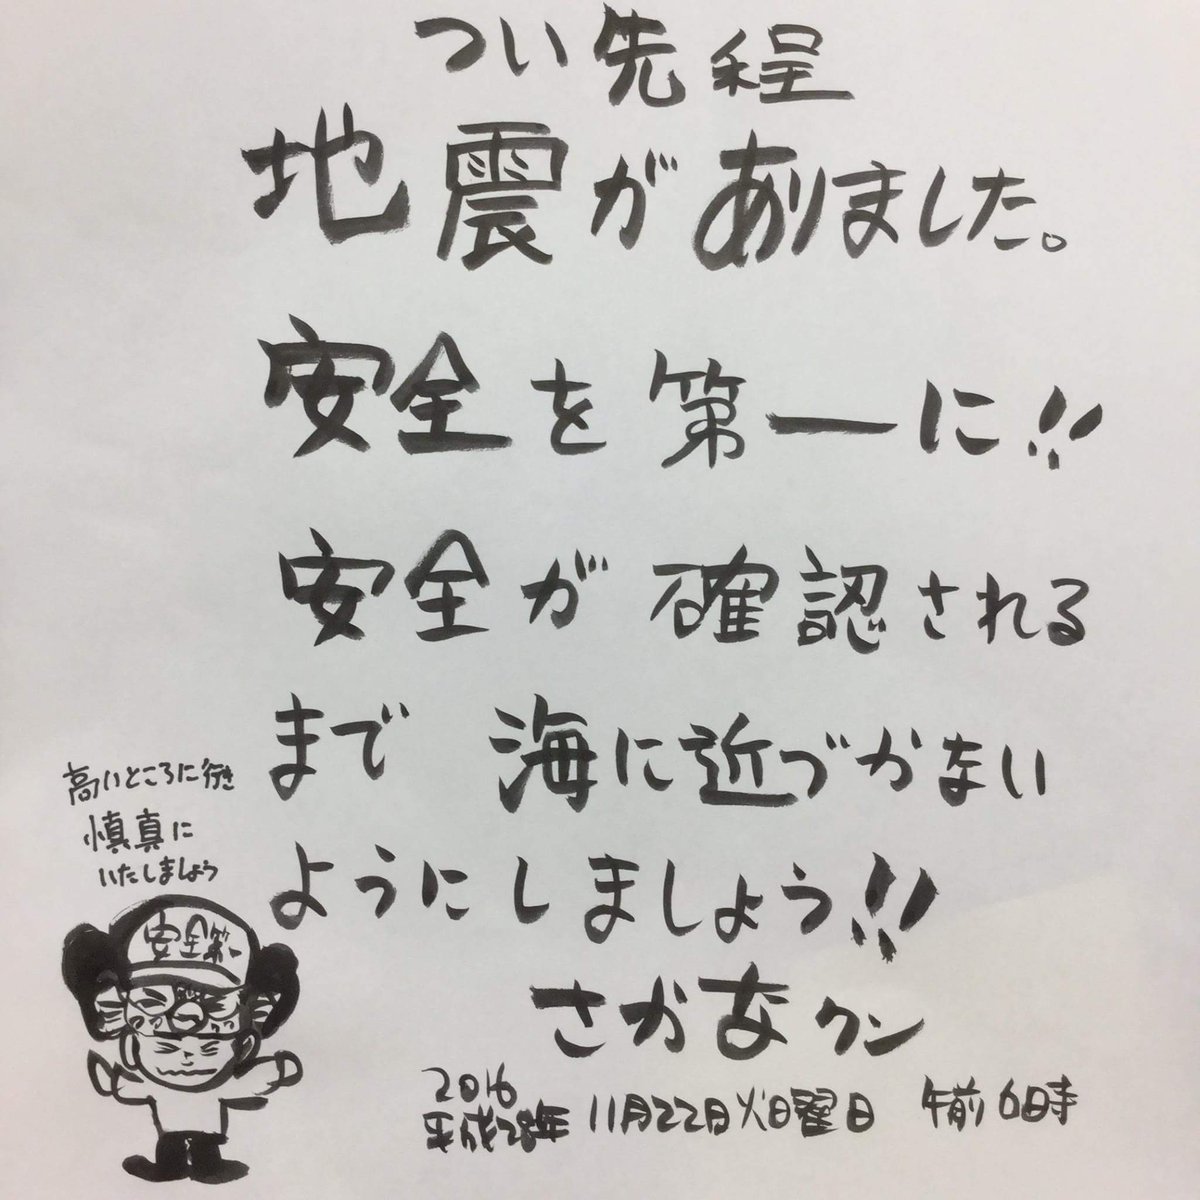 つい先程
地震がありました。
安全を第一に!!
安全が確認される
まで 海に近づかない
ようにしましょう!!
さかなクン
2016
平成28年 11月22日火曜日 午前6時
高いところに行き
慎真に
いたしましょう
安全第一